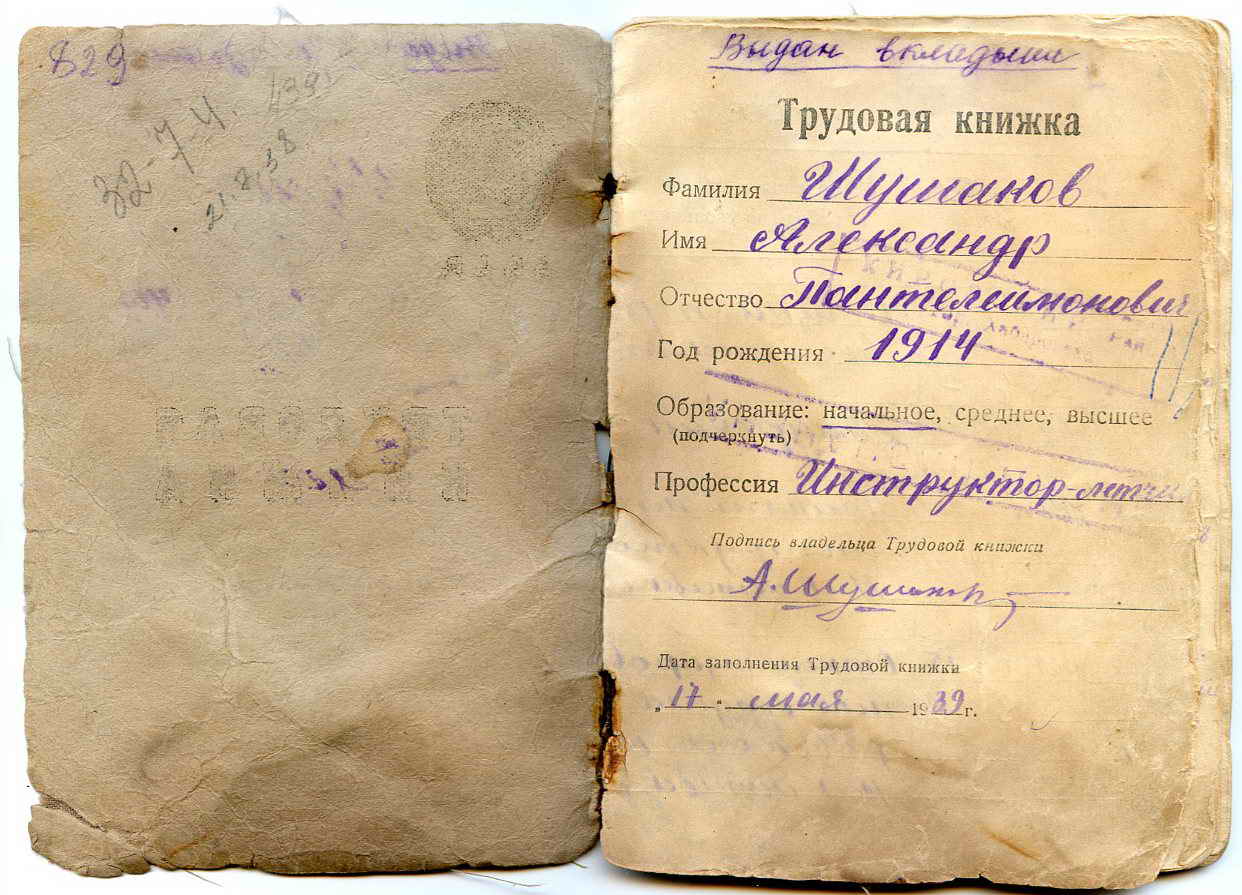 829
32-74.
21.2.38
Выдан вкладыш
Трудовая книжка
Фамилия Шушаков
Имя Александр
Отчество Пантелеимонович
Год рождения 1914
Образование: начальное, среднее, высшее
(подчеркнуть)
Профессия Инструктор-летчи
Подпись владельца Трудовой книжки
А. Шушак
Дата заполнения Трудовой книжки
„17“ мая 1939 г.